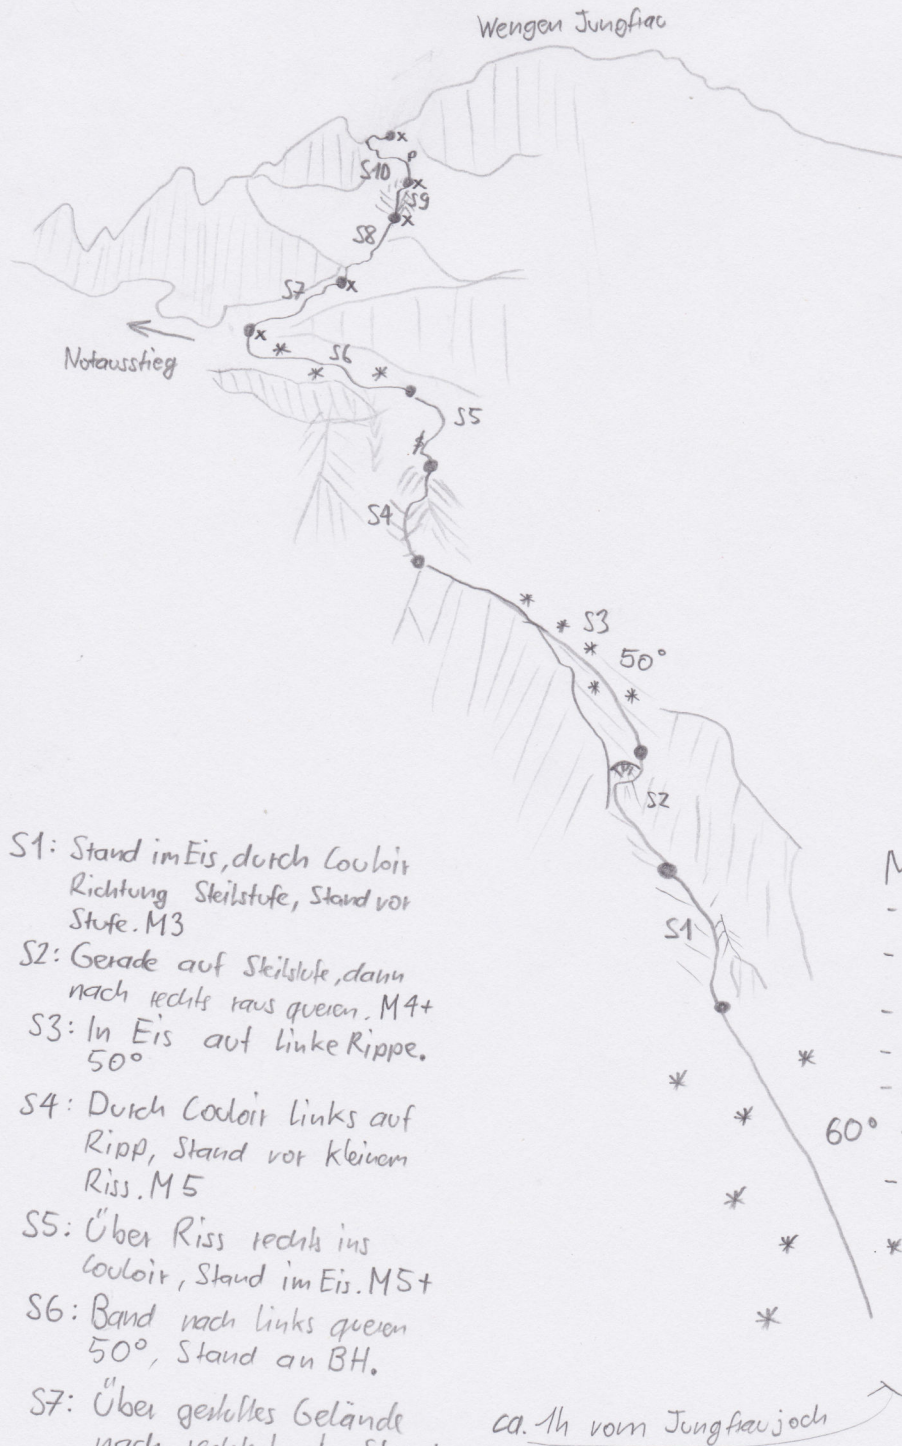 Wengen Jungfrau
S10
S9
S8
S7
S6
Notausstieg
S5
S4
S3
50°
S2
S1
60°
S1: Stand im Eis, durch Couloir
Richtung Steilstufe, Stand vor
Stufe. M3
S2: Gerade auf Steilstufe, dann
nach rechts raus queren. M4+
S3: In Eis auf linke Rippe.
50°
S4: Durch Couloir links auf
Ripp, Stand vor kleinem
Riss. M5
S5: Über Riss rechts ins
Couloir, Stand im Eis. M5+
S6: Band nach links queren
50°, Stand an BH.
S7: Über gestuftes Gelände
nach
ca. 1h vom Jungfraujoch